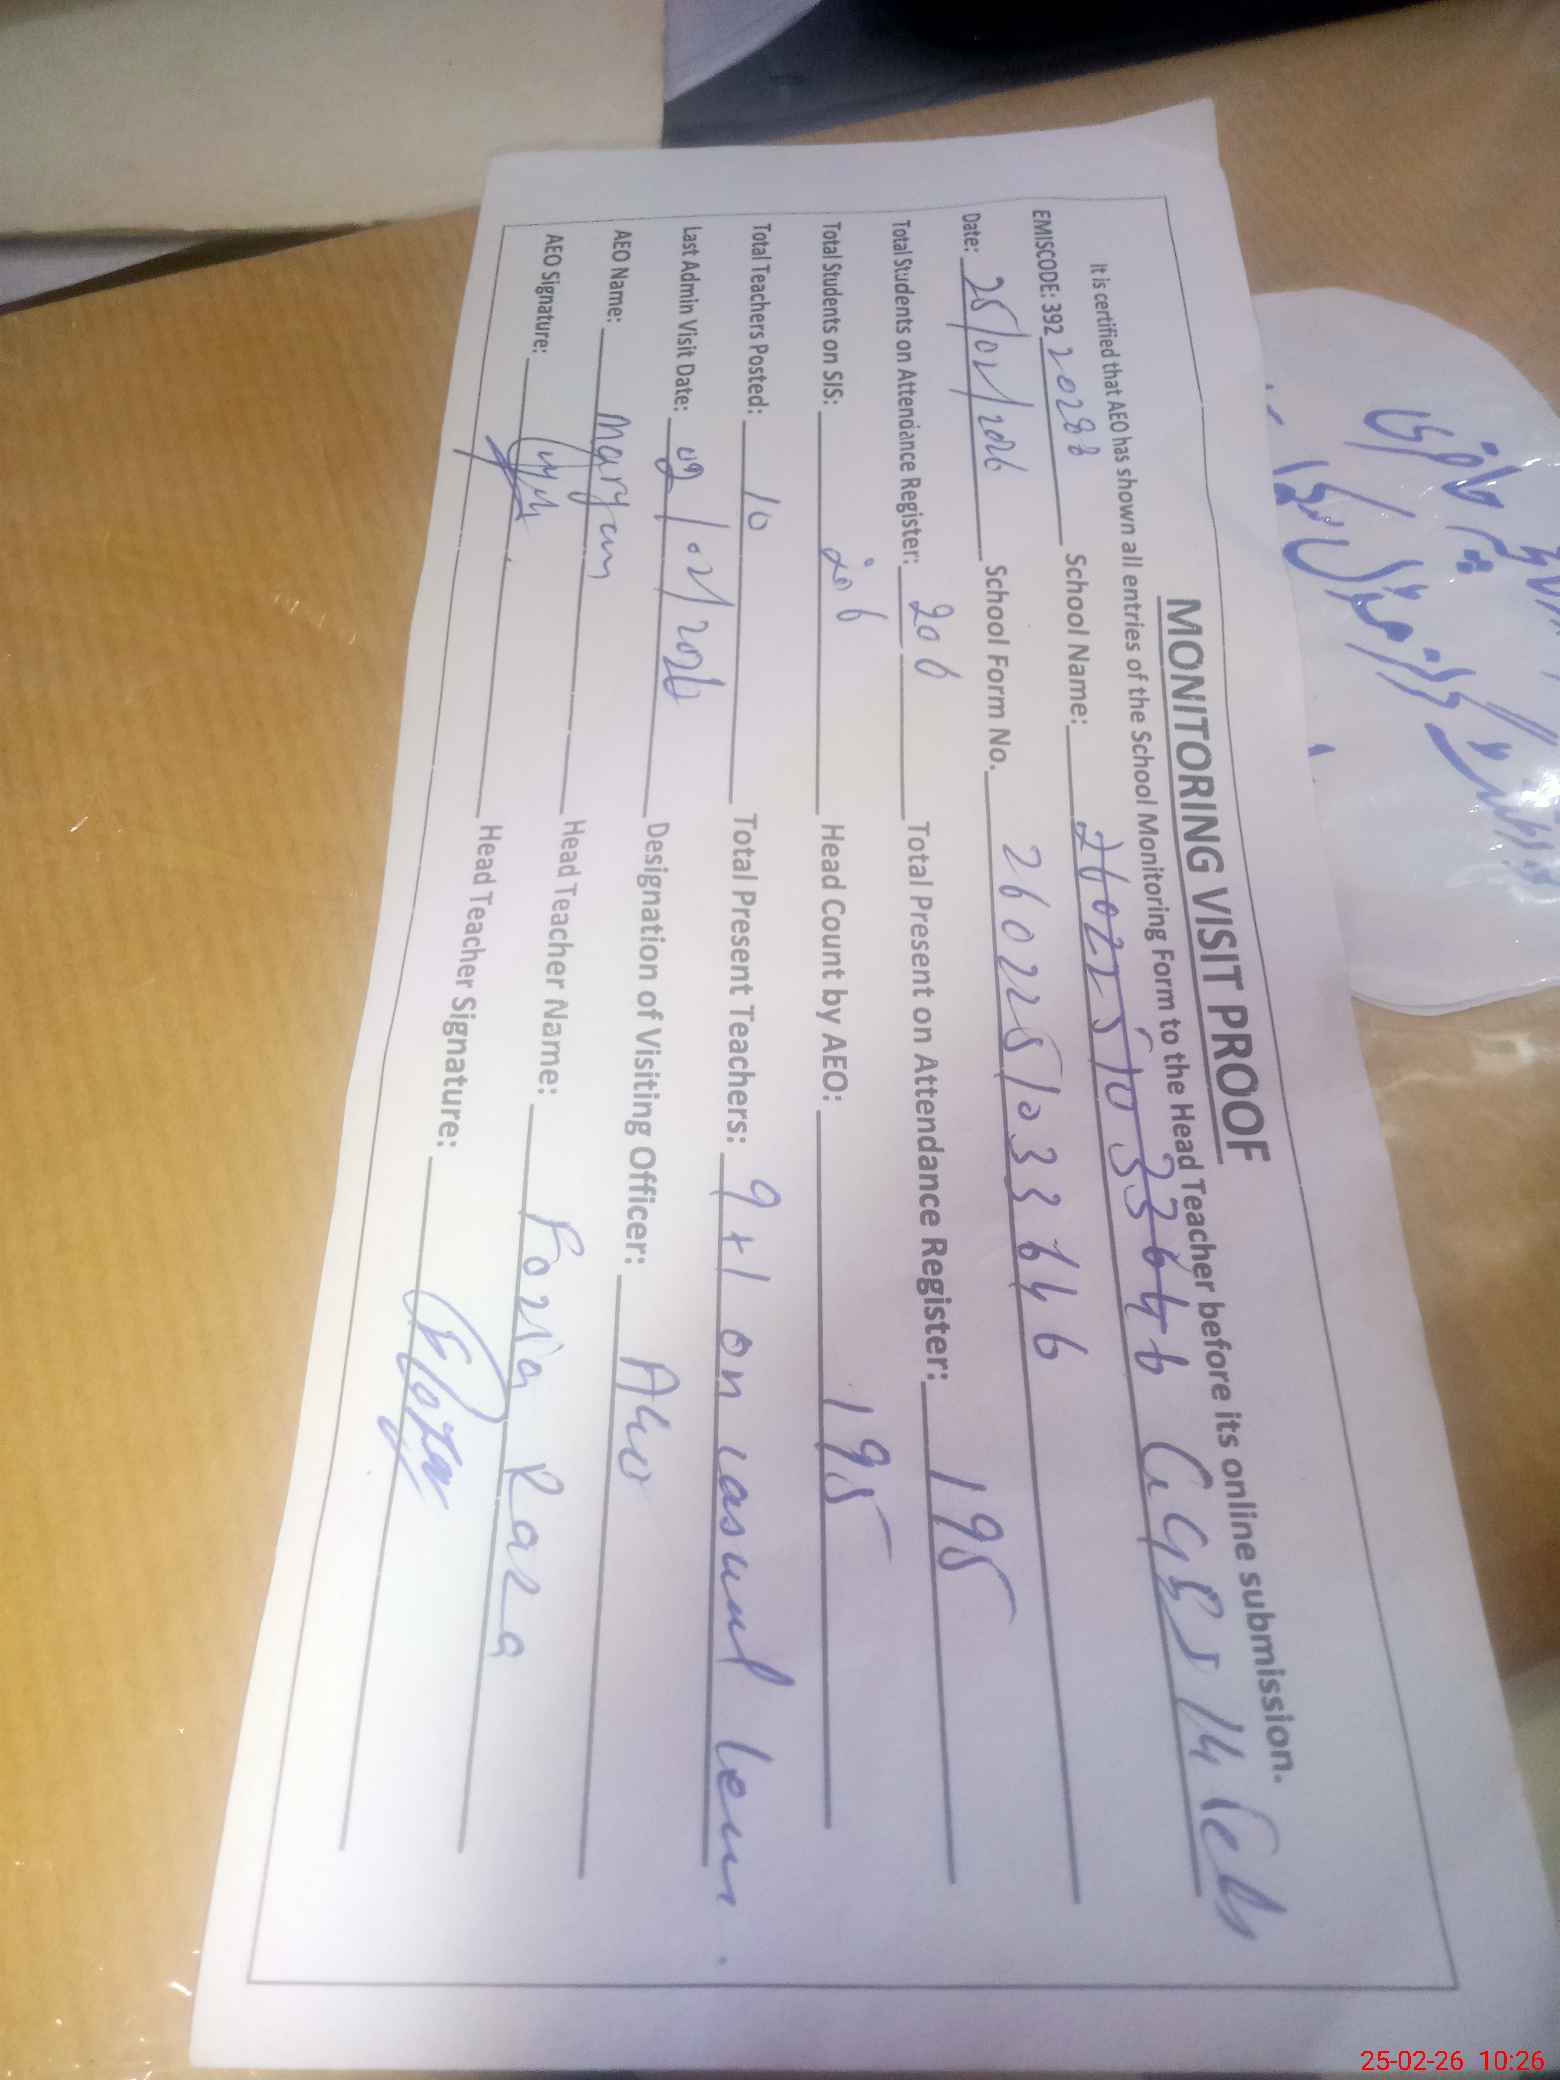 MONITORING VISIT PROOF
It is certified that AEO has shown all entries of the School Monitoring Form to the Head Teacher before its online submission.
EMISCODE: 392 20288 School Name: 260225103646 GGPS 14
Date: 25/02/2026 School Form No. 2602251033646
Total Students on Attendance Register: 206 Total Present on Attendance Register: 195
Total Students on SIS: 206 Head Count by AEO: 195
Total Teachers Posted: 10 Total Present Teachers: 9+1 on casual leave.
Last Admin Visit Date: 09/02/2026 Designation of Visiting Officer: AEO
AEO Name: Maryam Head Teacher Name: Fozia Raza
AEO Signature: Head Teacher Signature:
25-02-26 10:26